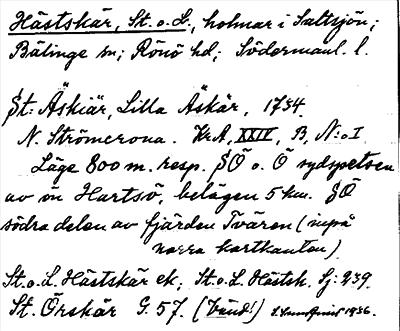 Hästskär, St. o. L., holmar i Saltsjön;
Bälinge sn; Rönö hd; Södermanl. l.
St: Äskiär, Lilla Äskär, 1734.
N. Strömcrona. KrA, XXIV, B, N:o I
Läge 800 m. resp. SÖ o. Ö sydspetsen
av ön Hartsö, belägen 5 km. SÖ
södra delen av fjärden Tvären (inpå
norra kartkanten).
St. o. L. Hästskär ek, St. o. L. Hästsk. Sj. 239.
St. Örskär G. 57. (Vänd!) 1936.